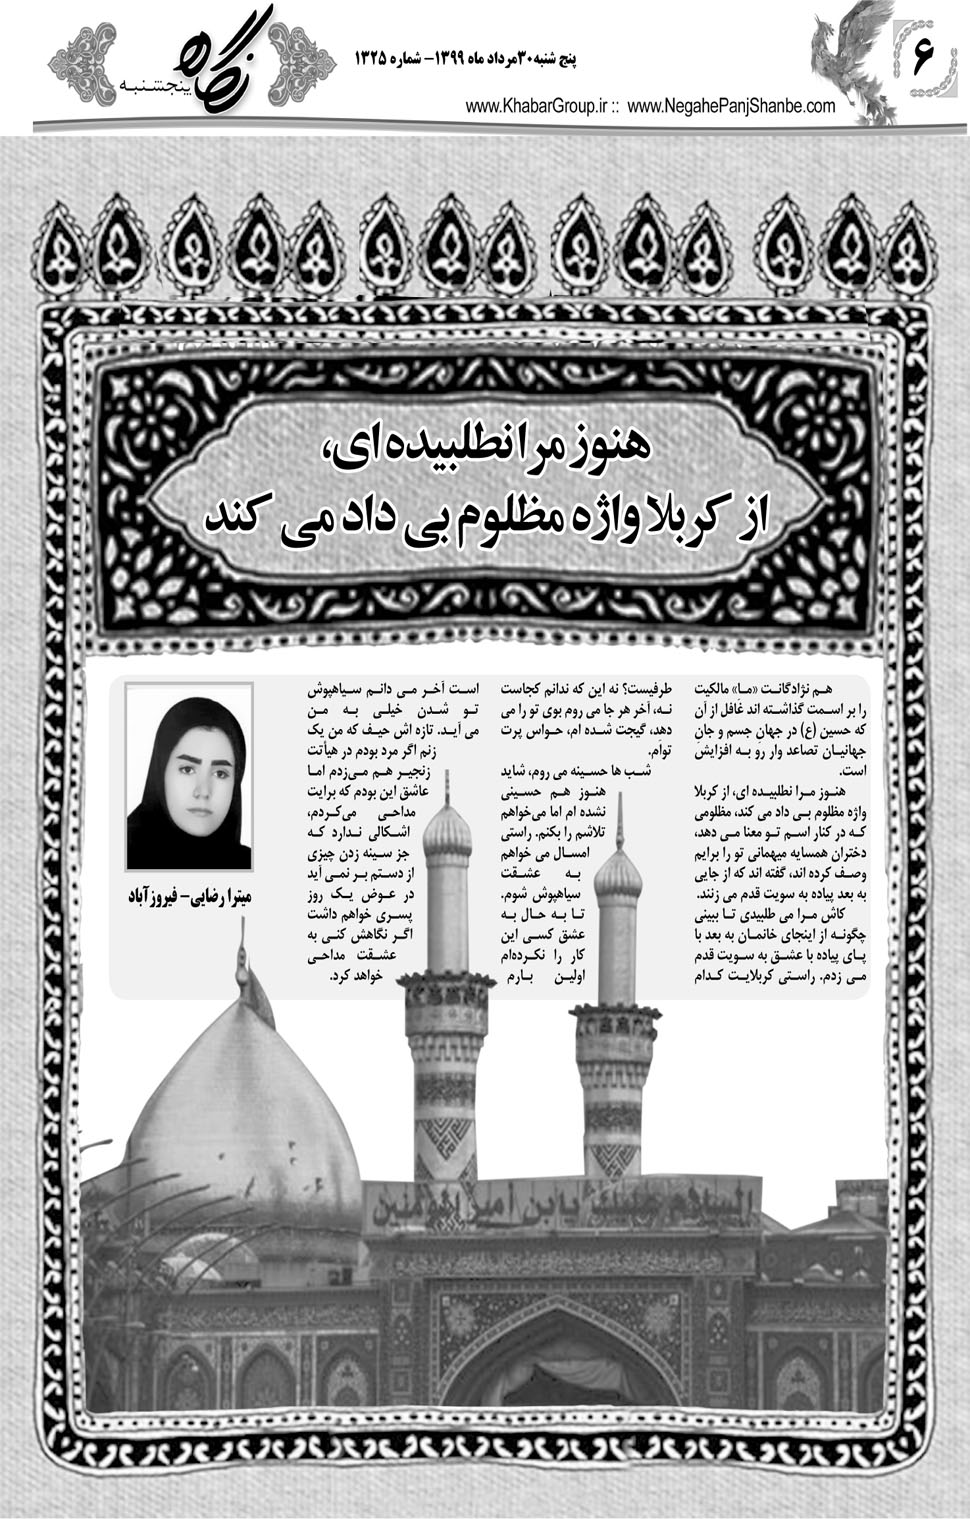 ۶
پنج شنبه۳۰مرداد ماه ۱۳۹۹- شماره ۱۳۲۵
www.KhabarGroup.ir :: www.NegahePanjShanbe.com
نگاه
پنجشنبه
هنوز مرا نطلبیده ای،
از کربلا واژه مظلوم بی داد می کند
هم نژادگانت «ما» مالکیت
را بر اسمت گذاشته اند غافل از آن
که حسین (ع) در جهانِ جسم و جان
جهانیان تصاعد وار رو به افزایش
است.
هنوز مرا نطلبیده ای، از کربلا
واژه مظلوم بی داد می کند، مظلومی
که در کنار اسم تو معنا می دهد،
دختران همسایه میهمانی تو را برایم
وصف کرده اند، گفته اند که از جایی
به بعد پیاده به سویت قدم می زنند.
کاش مرا می طلبیدی تا ببینی
چگونه از اینجای خانمان به بعد با
پای پیاده با عشق به سویت قدم
می زدم. راستی کربلایت کدام
طرفیست؟ نه این که ندانم کجاست
نه، آخر هر جا می روم بوی تو را می
دهد، گیجت شده ام، حواس پرت
تواَم.
شب ها حسینه می روم، شاید
هنوز هم حسینی
نشده ام اما می‌خواهم
تلاشم را بکنم. راستی
امسال می خواهم
به عشقت
سیاهپوش شوم.
تا به حال به
عشق کسی این
کار را نکرده‌ام
اولین بارم
است آخر می دانم سیاهپوش
تو شدن خیلی به من
می آید. تازه اش حیف که من یک
زنم اگر مرد بودم در هیأتت
زنجیر هم می‌زدم اما
عاشق این بودم که برایت
مداحی می‌کردم،
اشکالی ندارد که
جز سینه زدن چیزی
از دستم بر نمی آید
در عوض یک روز
پسری خواهم داشت
اگر نگاهش کنی به
عشقت مداحی
خواهد کرد.
میترا رضایی- فیروزآباد
السلام علیک یابن امیرالمومنین